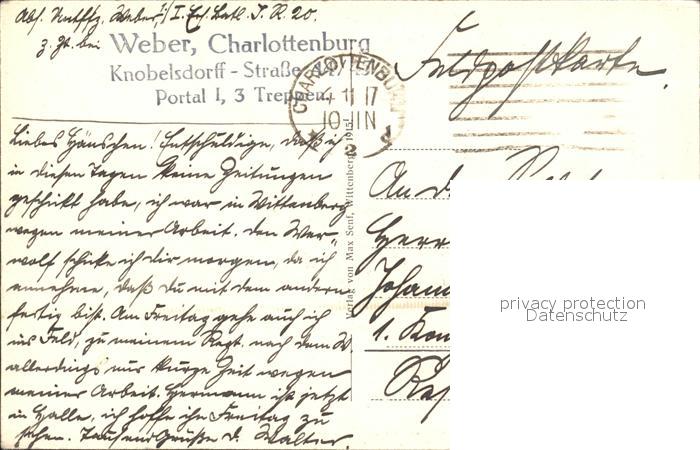 Abs. Untffz. Weber, I. Ers. Batl. I. R. 20.
z. Zt. bei Weber, Charlottenburg
Knobelsdorff-Straße
Portal I, 3 Treppen.
CHARLOTTENBURG
4 11 17
10-11N
1
2
Feldpostkarte.
Liebes Hänschen! Entschuldige, daß ich
in diesen Tagen keine Zeitungen
geschickt habe, ich war in Wittenberg
wegen meiner Arbeit. Den „Wer-
wolf" schicke ich dir morgen, da ich
annehme, daß Du mit dem andern
fertig bist. Am Freitag gehe auch ich
ins Feld, zu meinem Regt. nach dem W.
allerdings nur kurze Zeit wegen
meiner Arbeit. Hermann ist jetzt
in Halle, ich hoffe ihn Freitag zu
sehen. Tausend Grüße d. Walter.
Verlag von Max Senf, Wittenberg 1915
An d
Herr
Johann
1. Kom
privacy protection
Datenschutz